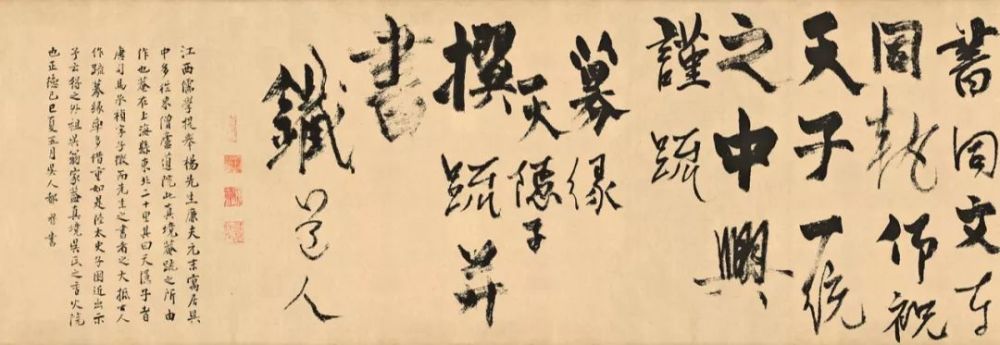 書同文車
同軌仰祝
天子一統
之中興
謹疏
募緣
天隱子
撰疏并
書
鐵道人
江西儒學提舉楊先生廉夫元末寓居吳
中多從東僧盧道院此真境菴疏之所由
作也菴在上海縣東北二十里其曰天隱子者
唐司馬承禎字子微而先生之書者之大抵古人
作疏募緣率多借重如是陸太史子淵近出示
予云得之外祖吳翁家蓋真境吳氏之香火院
也正德己巳夏五月吳人都穆書